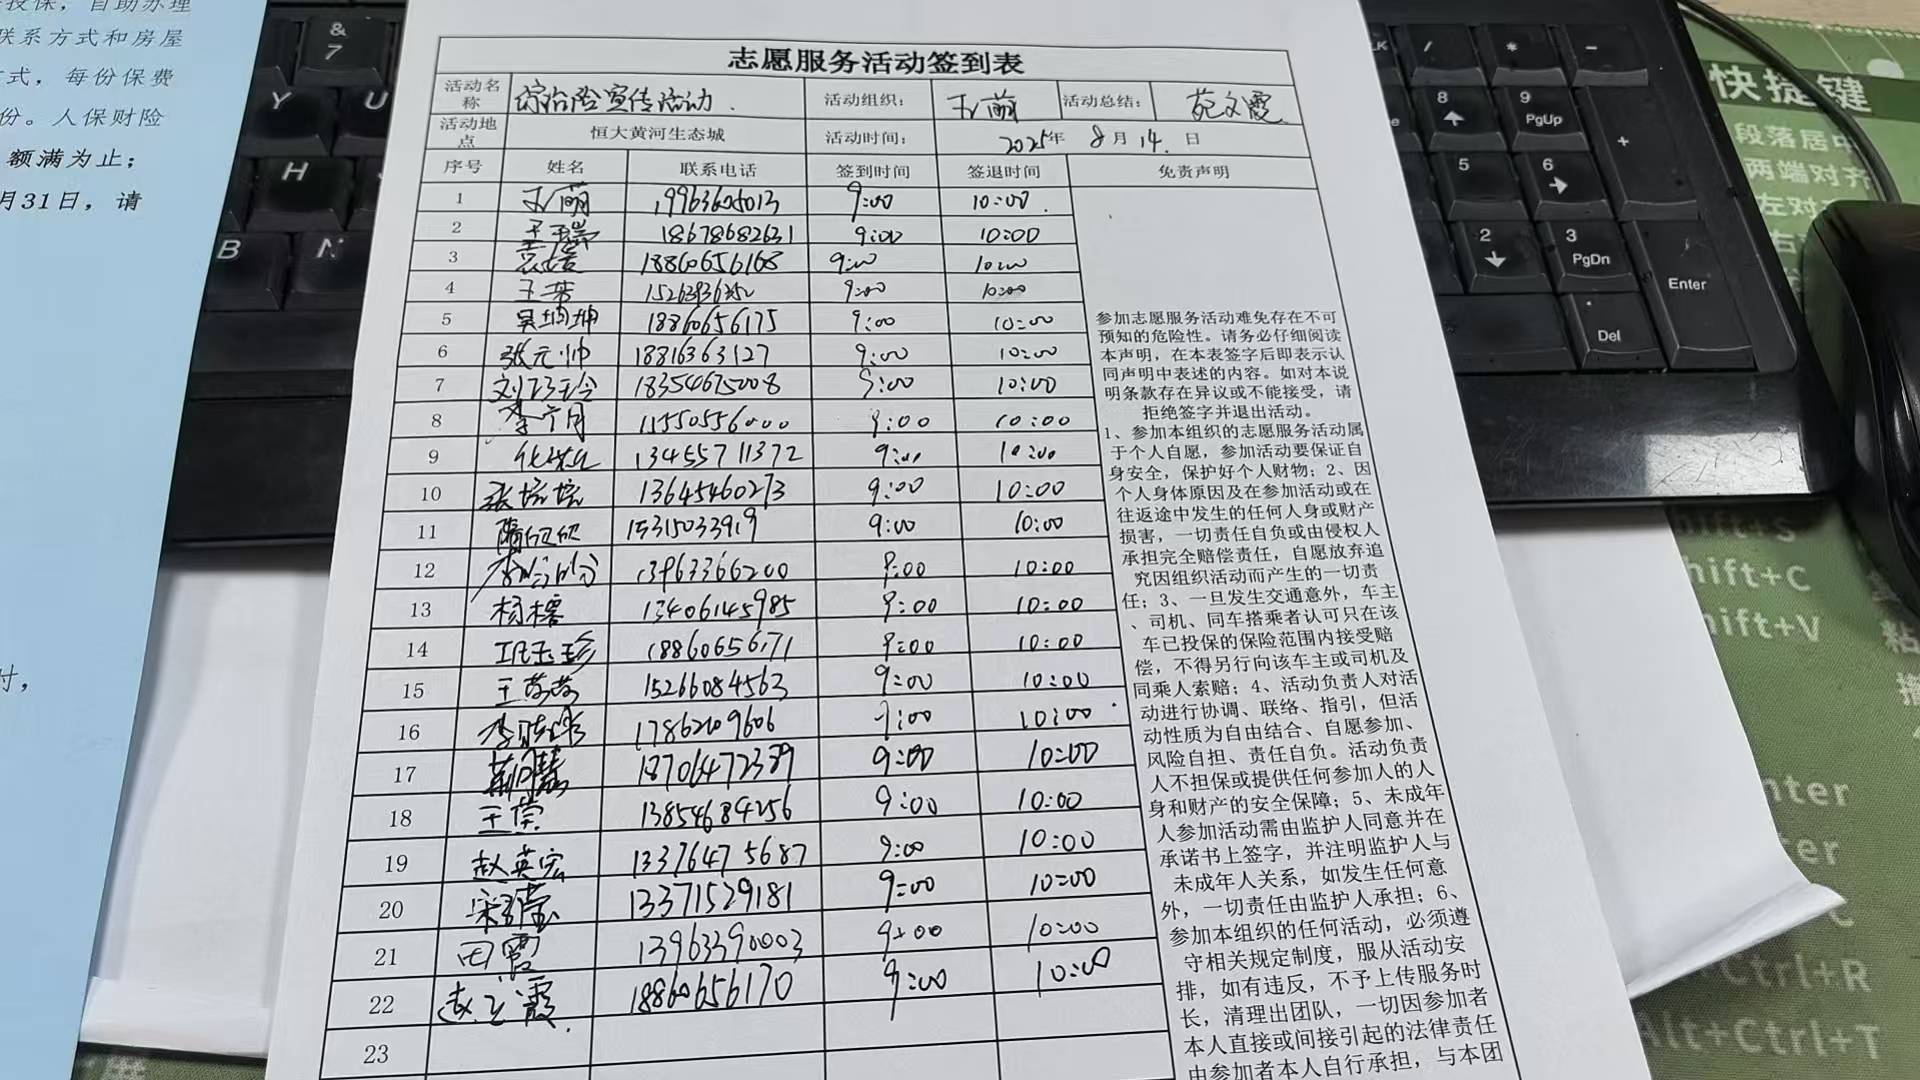 投保，自助办理
联系方式和房屋
式，每份保费
份。人保财险
额满为止；
月31日，请
时，
志愿服务活动签到表
活动名称 综治险宣传活动. 活动组织： 王萌 活动总结： 苑文霞
活动地点 恒大黄河生态城 活动时间： 2025年 8月 14.日
序号 姓名 联系电话 签到时间 签退时间 免责声明
1 王萌 19963605013 9:00 10:00.
2 王瑞 18678682631 9:00 10:00
3 18860656168 9:00 10:00
4 王芳 9:00 10:00
5 吴坤坤 18860656175 9:00 10:00
6 张元帅 18816363127 9:00 10:00
7 18354675008 9:00 10:00
8 李宁月 11550556000 9:00 10:00
9 13455711372 9:00 10:00
10 张培培 13645460273 9:00 10:00
11 隋欣欣 15315033919 9:00 10:00
12 李盼盼 13963366200 9:00 10:00
13 杨榕 13406145985 9:00 10:00
14 巩玉珍 18860656171 9:00 10:00
15 王苏苏 15266084563 9:00 10:00
16 17862109606 9:00 10:00
17 荆慧 18706472389 9:00 10:00
18 王荣 13854684256 9:00 10:00
19 赵英宏 13376475687 9:00 10:00
20 宋莹 13371529181 9:00 10:00
21 田霞 13963390003 9:00 10:00
22 赵云霞. 18860656170 9:00 10:00
23
参加志愿服务活动难免存在不可
预知的危险性。请务必仔细阅读
本声明，在本表签字后即表示认
同声明中表述的内容。如对本说
明条款存在异议或不能接受，请
拒绝签字并退出活动。
1、参加本组织的志愿服务活动属
于个人自愿，参加活动要保证自
身安全，保护好个人财物；2、因
个人身体原因及在参加活动或在
往返途中发生的任何人身或财产
损害，一切责任自负或由侵权人
承担完全赔偿责任，自愿放弃追
究因组织活动而产生的一切责
任；3、一旦发生交通意外，车主
、司机、同车搭乘者认可只在该
车已投保的保险范围内接受赔
偿，不得另行向该车主或司机及
同乘人索赔；4、活动负责人对活
动进行协调、联络、指引，但活
动性质为自由结合、自愿参加、
风险自担、责任自负。活动负责
人不担保或提供任何参加人的人
身和财产的安全保障；5、未成年
人参加活动需由监护人同意并在
承诺书上签字，并注明监护人与
未成年人关系，如发生任何意
外，一切责任由监护人承担；6、
参加本组织的任何活动，必须遵
守相关规定制度，服从活动安
排，如有违反，不予上传服务时
长，清理出团队，一切因参加者
本人直接或间接引起的法律责任
由参加者本人自行承担，与本团
&
7
Y U
H
B N
/ * -
8 9 PgUp +
5 6
2 3 PgDn
Enter
. Del
快捷键
段落居中
两端对齐
左对
右
Shift+S
Shift+C
Shift+V
Enter
Ctrl+R
Alt+Ctrl+T